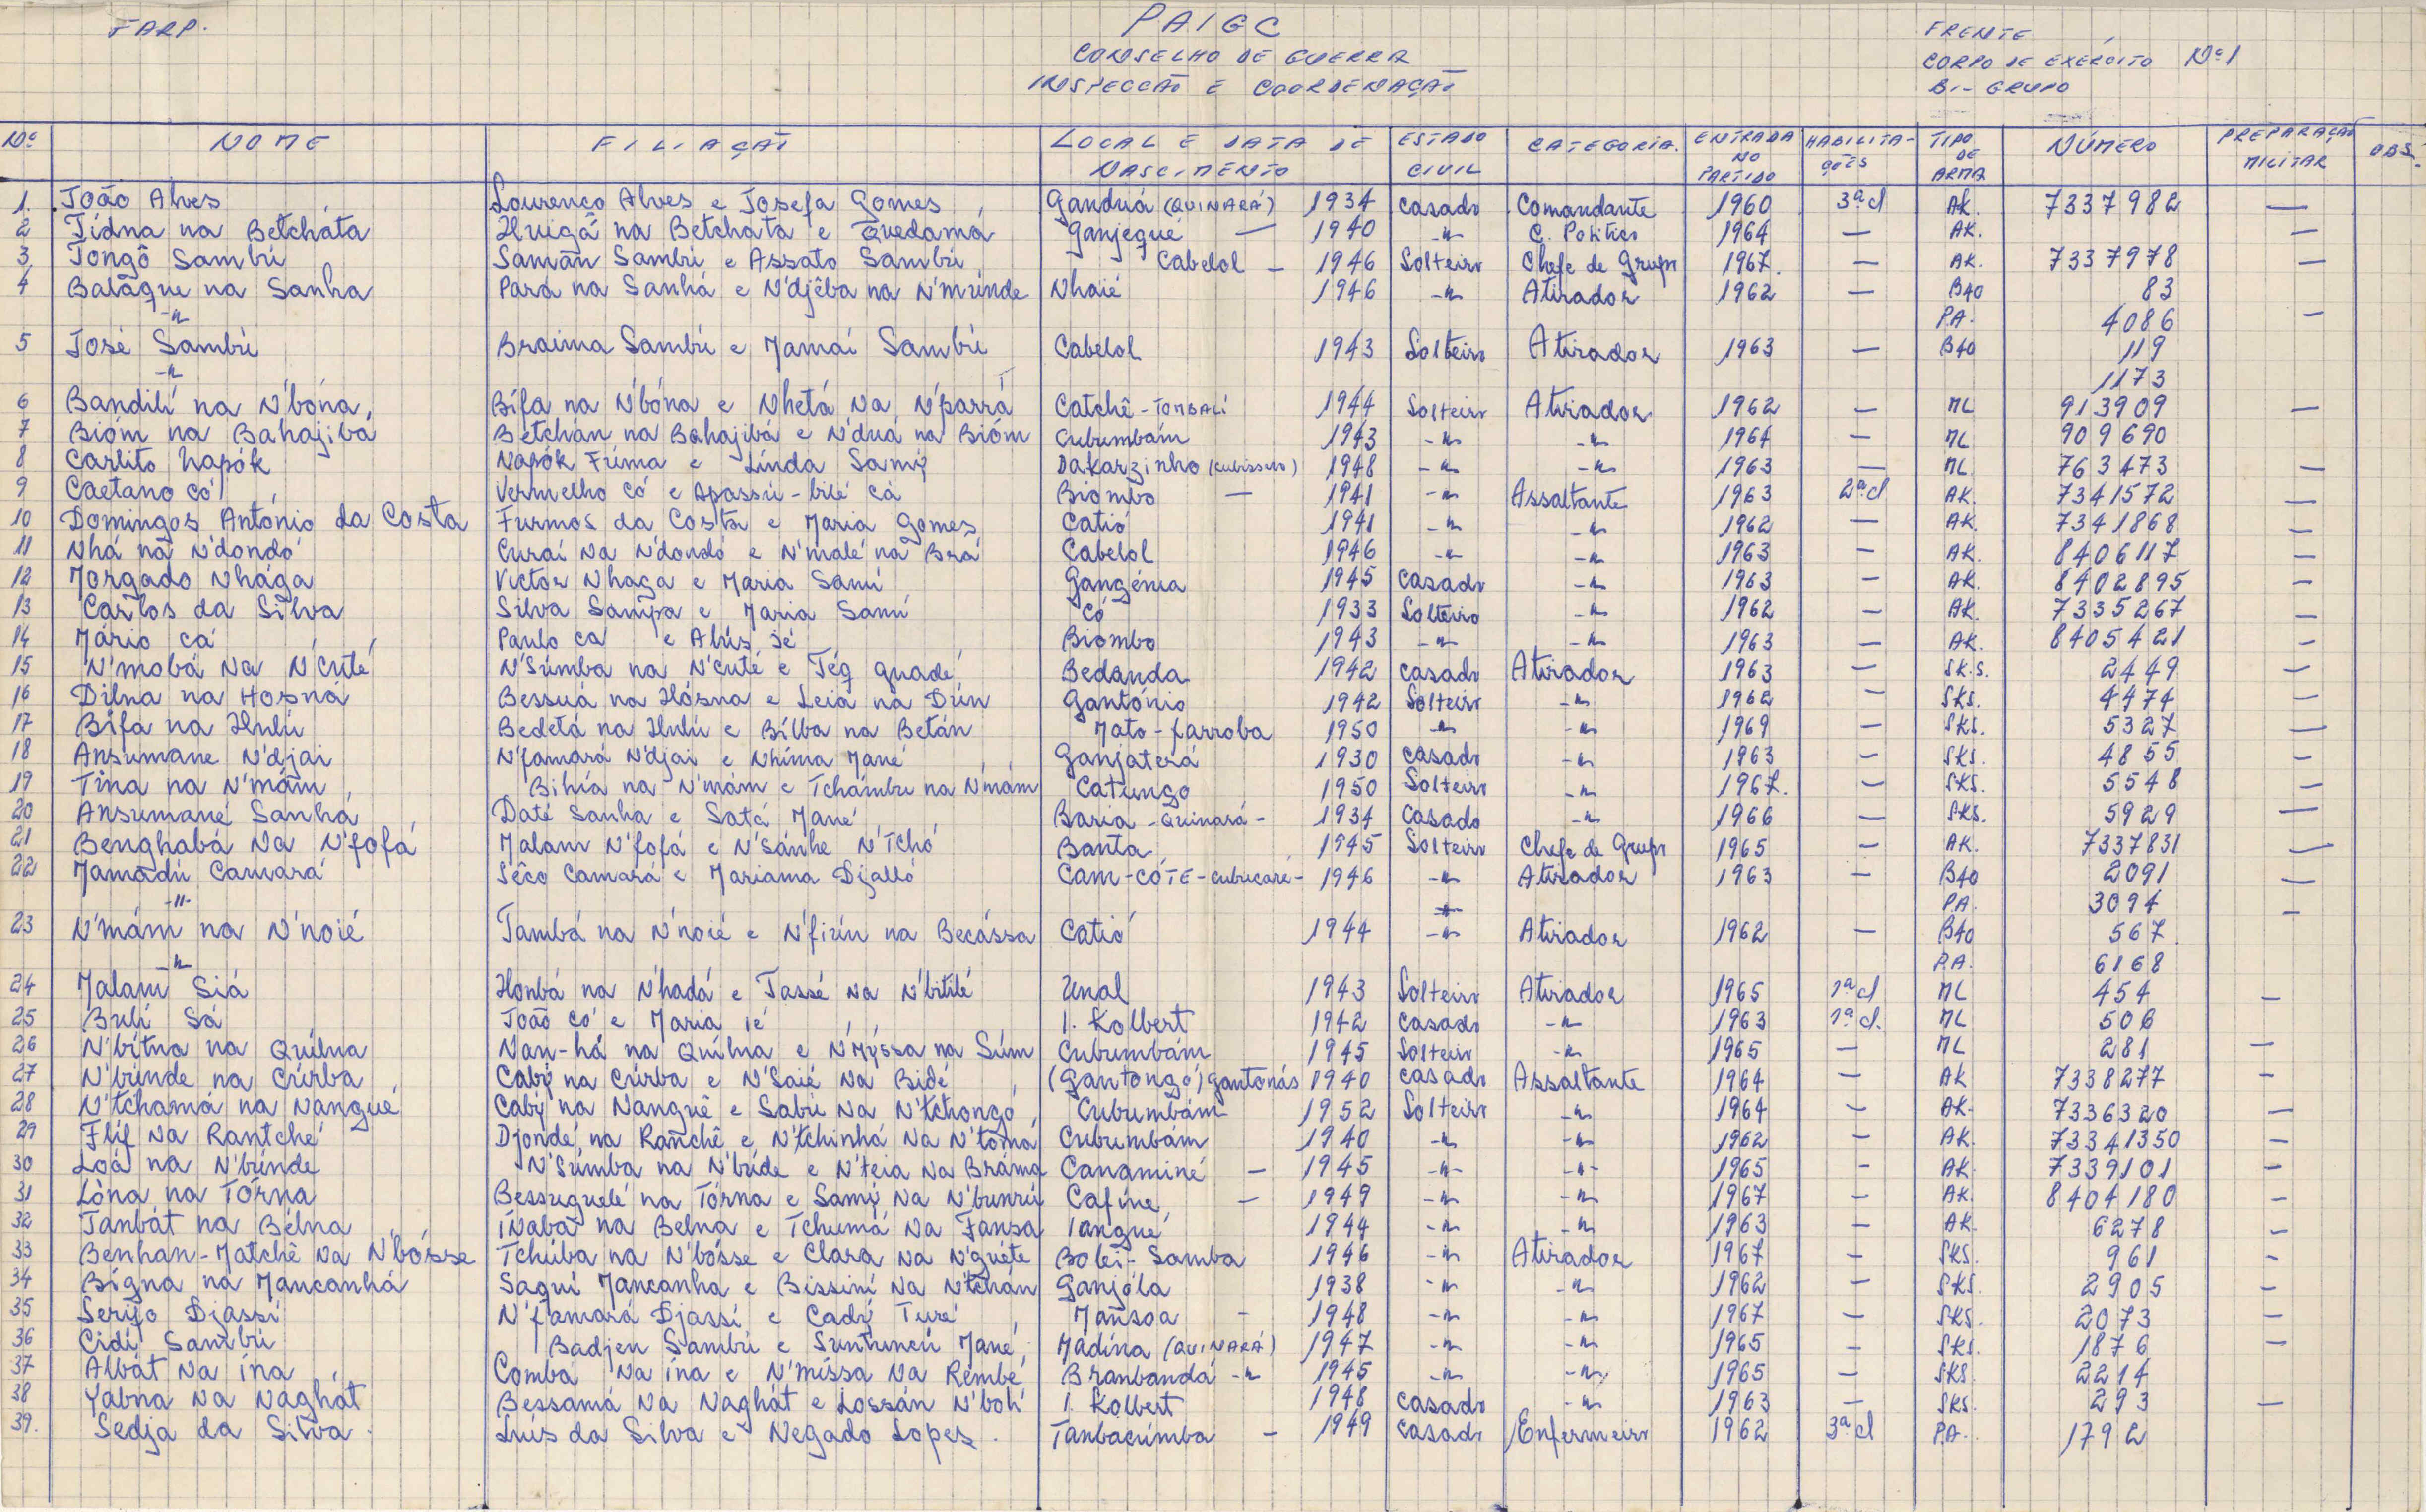 FARP.
PAIGC
CONSELHO DE GUERRA
INSPECCÃO E COORDENAÇÃO
FRENTE
CORPO DE EXÉRCITO Nº1
BI-GRUPO
Nº NOME FILIAÇÃO LOCAL E DATA DE NASCIMENTO ESTADO CIVIL CATEGORIA. ENTRADA NO PARTIDO HABILITA-ÇÕES TIPO DE ARMA NÚMERO PREPARAÇÃO MILITAR OBS.
1. João Alves Lourenço Alves e Josefa Gomes Ganduá (QUINARÁ) 1934 casado Comandante 1960 3ª cl AK. 7337982 —
2 Tídna na Betcháta Huigã na Betchata e Quedamá Ganjequé — 1940 -"- C. Politico 1964 — AK. —
3 Tongô Sambú Samãn Sambú e Assato Sambú Cabelol — 1946 Solteiro Chefe de Grupo 1967. — AK. 7337978 —
4 Balãque na Sanha Pará na Sanhá e N'djêba na N'múnde Nhaié 1946 -"- Atirador 1962 — B40 83
-"- P.A. 4086 —
5 José Sambú Braima Sambú e Mamaí Sambú Cabelol 1943 Solteiro Atirador 1963 — B40 119
-"- 1173
6 Bandilí na N'bóna, Bífa na N'bóna e Nhetá Na N'parrá Catchê - TOMBALÍ 1944 Solteiro Atirador 1962 — ML 913909 —
7 Bióm na Bahajibá Betchán na Bahajibá e N'duá na Bióm Cubumbám 1943 -"- -"- 1964 — ML 909690
8 Carlito Napók Napók Fúma e Línda Samý Dakarzinho (cubisseco) 1948 -"- -"- 1963 — ML 763473 —
9 Caetano Có Vermelho Có e Apassú-bilé cá Biombo — 1941 -"- Assaltante 1963 2ª cl AK. 7341572 —
10 Domingos António da Costa Furmos da Costa e Maria Gomes Catió 1941 -"- -"- 1962 — AK. 7341868 —
11 Nhá na N'dondó Curaí Na N'dondó e N'malé na Brá Cabelol 1946 -"- -"- 1963 — AK. 8406117 —
12 Morgado Nhága Victor Nhaga e Maria Samí Gangénia 1945 casado -"- 1963 — AK. 8402895 —
13 Carlos da Silva Silva Sampa e Maria Samí Có 1933 Solteiro -"- 1962 — AK. 7335267 —
14 Mário cá Paulo cá e Alús Sé Biombo 1943 -"- -"- 1963 — AK. 8405421 —
15 N'mobá Na N'cuté N'Súmba na N'cuté e Tég quadé Bedanda 1942 casado Atirador 1963 — SK.S. 2449 —
16 Dílna na Hosná Bessuá na Hósna e Leia na Dún Gantónio 1942 Solteiro -"- 1962 — SKS. 4474 —
17 Bífa na Hulú Bedetá na Hulú e Bílba na Betán Mato-farroba 1950 -"- -"- 1969 — SKS. 5327 —
18 Ansumane N'djai N'famará N'djai e N'híma Mané Ganjaterá 1930 casado -"- 1963 — SKS. 4855 —
19 Tína na N'mám Bihía na N'mám e Tchámbu na N'mám Catungo 1950 Solteiro -"- 1967. — SKS. 5548 —
20 Ansumané Sanhá Daté Sanha e Satá Mané Baria - Quinará - 1934 Casado -"- 1966 — SKS. 5929 —
21 Benghabá Na N'fofá Malam N'fofá e N'sánhe N'Tchó Banta 1945 Solteiro Chefe de Grupo 1965 — AK. 7337831 —
22 Mamadú Camará Sêco Camará e Mariama Djalló Cam-CÓTE-cubucaré - 1946 -"- Atirador 1963 — B40 2091 —
-"- -"- P.A. 3094 —
23 N'mám na N'noié Tambá na N'noié e N'fizún na Becássa Catió 1944 -"- Atirador 1962 — B40 567.
-"- P.A. 6168
24 Malam Siá Honbá na N'hadá e Tassé Na N'bitilé Unal 1943 Solteiro Atirador 1965 1ª cl ML 454 —
25 Bulí Sá João Có e Maria ié I. Kolbert 1942 casado -"- 1963 1ª cl. ML 506
26 N'bítna na Quílna Nan-há na Quílna e N'Mýssa na Súm Cubumbám 1945 Solteiro -"- 1965 — ML 281 —
27 N'búnde na Cúrba Cabý na Cúrba e N'Saié Na Bidé (Gantongó) gantonás 1940 casado Assaltante 1964 — AK 7338277 —
28 N'tchamá na Nangué Cabý na Nanguê e Sabú Na N'tchongó Cubumbám 1952 Solteiro -"- 1964 — AK. 7336320 —
29 Flíf Na Rantché Djondé, na Ranchê e N'tchinhá Na N'tomá Cubumbám 1940 -"- -"- 1962 — AK. 73341350 —
30 Loá na N'búnde N'Súmba na N'búde e N'teia Na Bráma Canaminé — 1945 -"- -"- 1965 — AK. 7339101 —
31 Lòna na Tórna Bessuguelé na Tórna e Samý Na N'bunrú Cafíne, — 1949 -"- -"- 1967 — AK. 8404180 —
32 Tanbát na Bélna Ínaba na Belna e Tchumá Na Fansa Iangué 1944 -"- -"- 1963 — AK. 6278 —
33 Benhan-Matchê Na N'bósse Tchúba na N'bósse e Clara Na N'guéte Bolei-Samba 1946 -"- Atirador 1967 — SKS. 961 —
34 Bígna na Mancanhá Saquí Mancanha e Bissiní Na N'tchán Ganjóla 1938 -"- -"- 1962 — SKS. 2905 —
35 Serifo Djassí N'famará Djassí e Cadý Turé Mansoa - 1948 -"- -"- 1967 — SKS. 2073 —
36 Cidí Sambú Badjen Sambú e Suntuncú Mané Madína (QUINARÁ) 1947 -"- -"- 1965 — SKS. 1876 —
37 Albát Na ína Comba Na ína e N'míssa Na Rémbé Branbanda -"- 1945 -"- -"- 1965 — SKS. 2214
38 Yabna Na Nághát Bessamá Na Naghát e Lossán N'bolí I. Kolbert 1948 casado -"- 1963 — SKS. 293 —
39. Sedja da Silva. Luís da Silva e Negado Lopes. Tanbacúmba — 1949 casado Enfermeiro 1962 3ª cl P.A. 1792